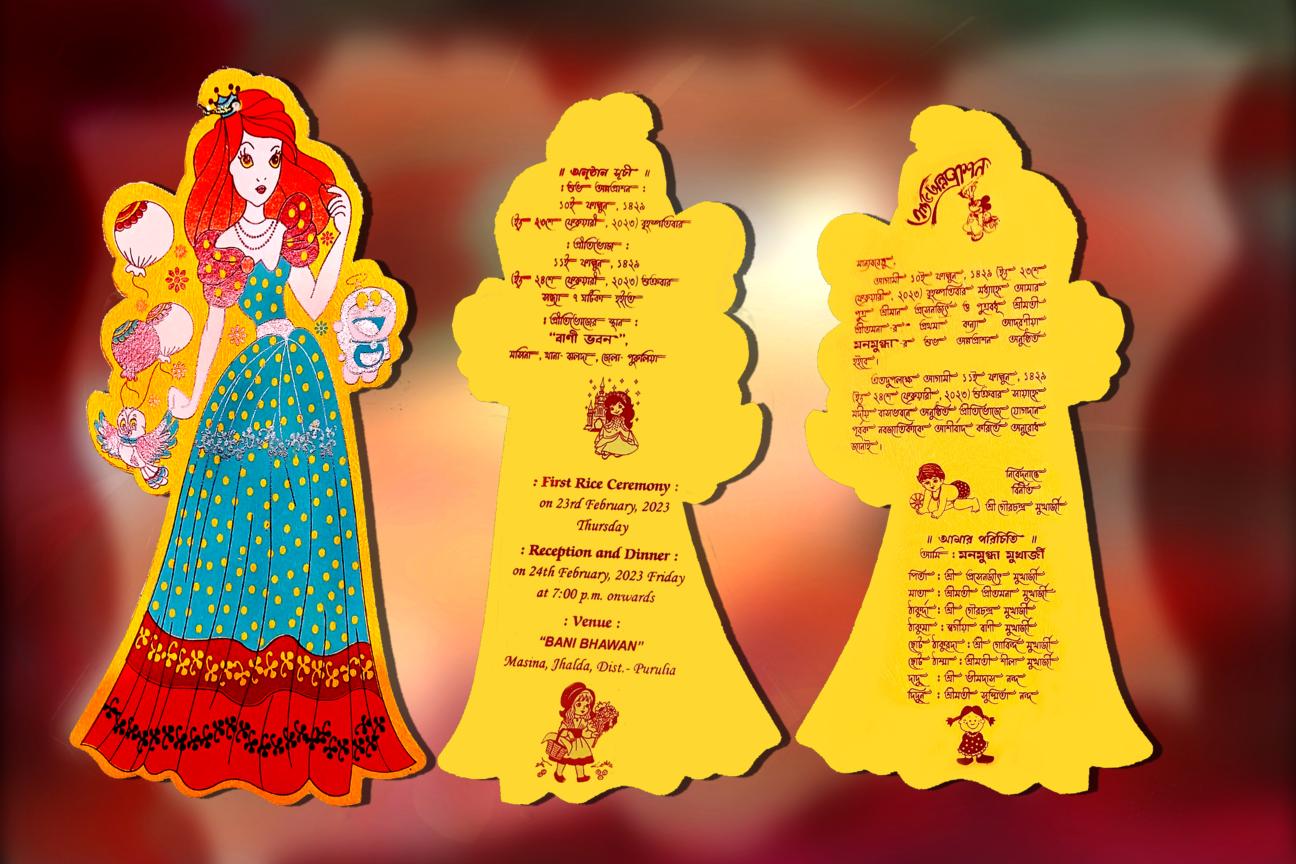 ॥ অনুষ্ঠান সূচী ॥
: শুভ অন্নপ্রাশন :
১০ই ফাল্গুন, ১৪২৯
(ইং ২৩শে ফেব্রুয়ারী, ২০২৩) বৃহস্পতিবার
: প্রীতিভোজ :
১১ই ফাল্গুন, ১৪২৯
(ইং ২৪শে ফেব্রুয়ারী, ২০২৩) শুক্রবার
সন্ধ্যা ৭ ঘটিকা হইতে
: প্রীতিভোজের স্থান :
“বাণী ভবন”,
মাসিনা, থানা- ঝালদা, জেলা- পুরুলিয়া
: First Rice Ceremony :
on 23rd February, 2023
Thursday
: Reception and Dinner :
on 24th February, 2023 Friday
at 7:00 p.m. onwards
: Venue :
“BANI BHAWAN”
Masina, Jhalda, Dist.- Purulia
শুভ অন্নপ্রাশন
মান্যবরেষু,
আগামী ১০ই ফাল্গুন, ১৪২৯ (ইং ২৩শে
ফেব্রুয়ারী, ২০২৩) বৃহস্পতিবার মধ্যাহ্নে আমার
পুত্র শ্রীমান প্রসেনজিৎ ও পুত্রবধূ শ্রীমতী
প্রীতমনা-র প্রথমা কন্যা আদরণীয়া
মনমুগ্ধা-র শুভ অন্নপ্রাশন অনুষ্ঠিত
হইবে।
এতদুপলক্ষে আগামী ১১ই ফাল্গুন, ১৪২৯
(ইং ২৪শে ফেব্রুয়ারী, ২০২৩) শুক্রবার সায়াহ্নে
মদীয় বাসভবনে অনুষ্ঠিত প্রীতিভোজে যোগদান
পূর্বক নবজাতিকাকে আশীর্বাদ করিতে অনুরোধ
জানাই।
নিবেদনান্তে
বিনীত
শ্রী গৌরচন্দ্র মুখার্জী
॥ আমার পরিচিতি ॥
আমি : মনমুগ্ধা মুখার্জী
পিতা : শ্রী প্রসেনজীৎ মুখার্জী
মাতা : শ্রীমতী প্রীতমনা মুখার্জী
ঠাকুর্দা : শ্রী গৌরচন্দ্র মুখার্জী
ঠাকুমা : স্বর্গীয়া বাণী মুখার্জী
ছোট ঠাকুরদা : শ্রী গোবিন্দ মুখার্জী
ছোট ঠাম্মা : শ্রীমতী শীলা মুখার্জী
দাদু : শ্রী ভীমদাস নন্দ
দিদুন : শ্রীমতী সুস্মিতা নন্দ